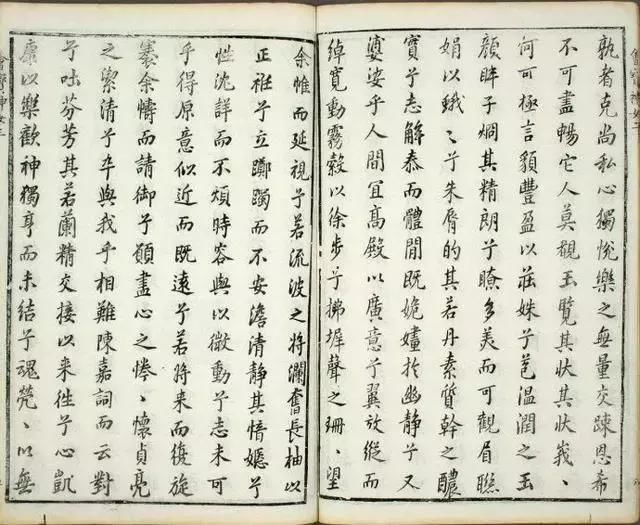 孰者克尚私心獨悅樂之無量交踈恩希
不可盡暢它人莫覩玉覽其狀其狀峩〻
何可極言貌豐盈以莊姝兮苞温潤之玉
顔眸子炯其精朗兮瞭多美而可觀眉聮
娟以蛾〻兮朱脣的其若丹素質幹之醲
實兮志解泰而體閒既姽嫿扵幽静兮又
婆娑乎人間宜髙殿以廣意兮翼放縱而
綽寛動霧縠以徐步兮拂墀聲之珊〻望
余惟而延視兮若流波之將瀾奮長袖以
正衽兮立躑躅而不安澹清静其愔嫕兮
性沈詳而不煩時容與以微動兮志未可
乎得原意似近而既逺兮若將来而復旋
褰余幬而請御兮願盡心之惓〻懷貞亮
之潔清兮卒與我乎相難陳嘉詞而云對
兮吐芬芳其若蘭精交接以来徃兮心凱
康以樂歡神獨亨而未結兮魂煢〻以無